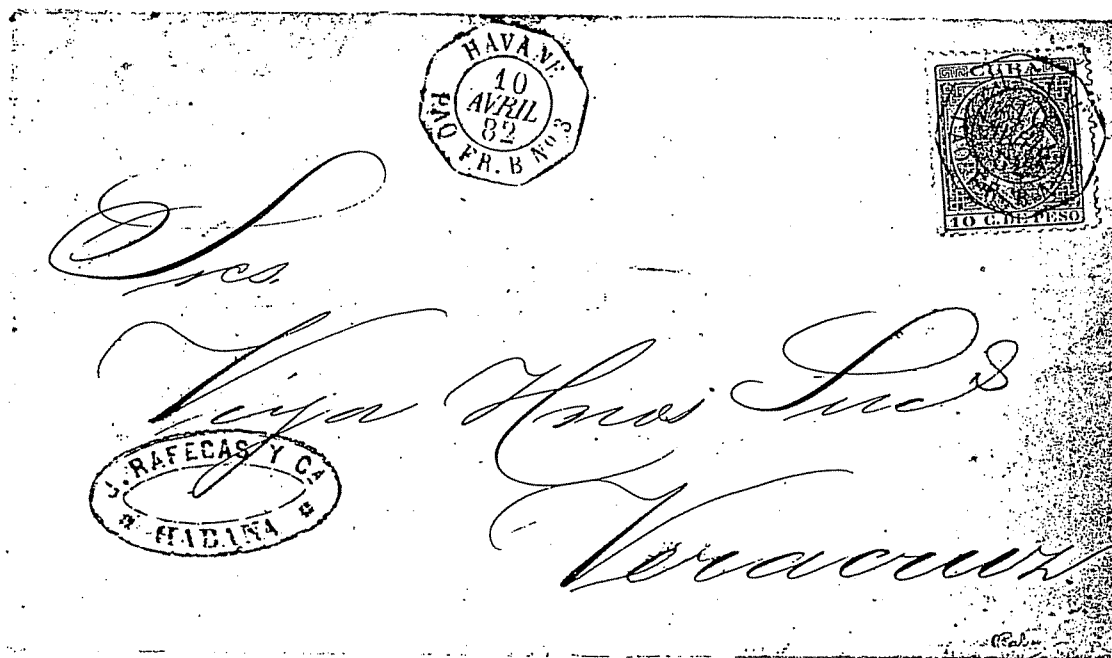 HAVANE
10
AVRIL
82
PAQ. FR. B Nº 3
CUBA
PAQ. FR. B Nº
10 C. DE PESO
Sres.
Veija Hnos Sucs
J. RAFECAS Y CA
HABANA
Veracruz